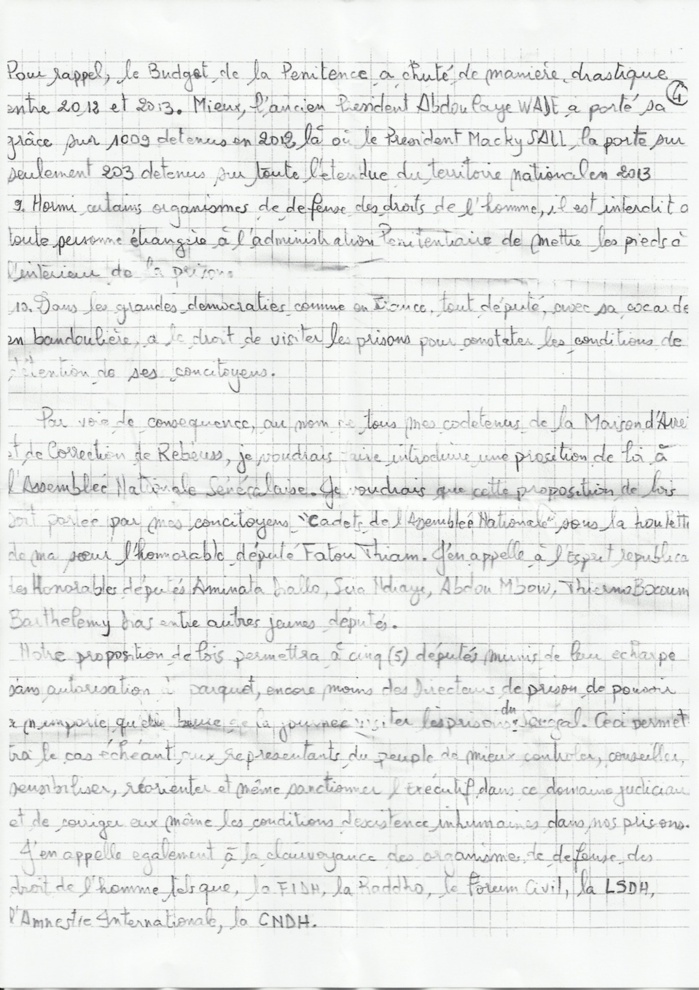 Pour rappel, le Budget de la Penitence a chuté de manière drastique
④
entre 2012 et 2013. Mieux, l'ancien President Abdoulaye WADE a porté sa
grâce sur 1009 detenus en 2012, là où le President Macky SALL la porte sur
seulement 203 detenus sur toute l'étendue du territoire national en 2013
9. Hormi certains organismes de defense des droits de l'homme, il est interdit a
toute personne étrangère à l'administration Penitentiaire de mettre les pieds à
l'intérieur de la prison
10. Dans les grandes democraties comme en France, tout député, avec sa cocarde
en bandoulière, a le droit de visiter les prisons pour constater les conditions de
détention de ses concitoyens.
Par voie de consequence, au nom de tous mes codetenus de la Maison d'Arre
et de Correction de Rebeuss, je voudrais faire introduire une prosition de loi à
l'Assembleé Nationale Sénégalaise. Je voudrais que cette proposition de lois
soit portée par mes concitoyens "Cadets de l'Assembleé Nationale" sous la houlette
de ma sœur l'honorable député Fatou Thiam. J'en appelle à l'Esprit republica
les Honorables députés Aminata Diallo, Seia Ndiaye, Abdou Mbow, Thierno Bocoum
Barthelemy Dias entre autres jeunes députés.
Notre proposition de lois permettra à cinq (5) députés munis de leur echarpe
sans autorisation parquet, encore moins des Directeurs de prison de pouvoir
à n'importe quelle heure de la journee visiter les prisons du Senegal. Ceci permet
tra le cas échéant aux representants du peuple de mieux controler, conseiller,
sensibiliser, réorienter et même sanctionner l'Exécutif dans ce domaine judiciair
et de corriger eux même les conditions d'existence inhumaines dans nos prisons.
J'en appelle egalement à la clairvoyance des organismes de defense des
droit de l'homme tels que, la FIDH, la Raddho, le Forum Civil, la LSDH,
l'Amnestie Internationale, la CNDH.